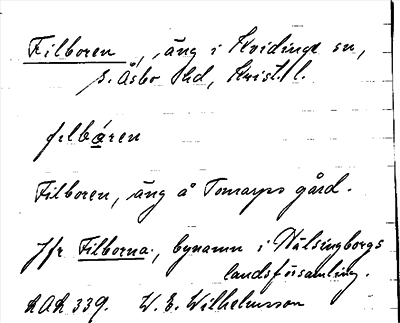 Filboren, äng i Kvidinge sn,
s. Åsbo hd, Krist. l.
filbåren
Filboren, äng å Tomarps gård.
Jfr Filborna, bynamn i Hälsingborgs
landsförsamling.
AAA 339. W. E. Wilhelmsson